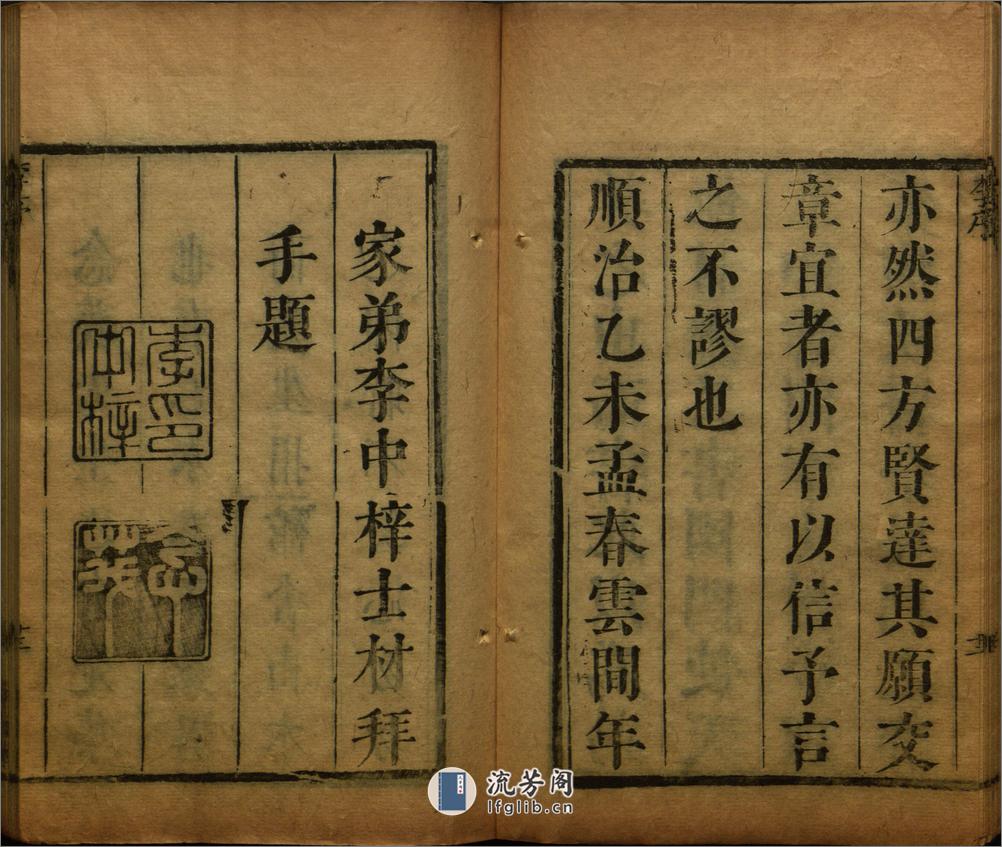 亦然四方賢達其願交
章宜者亦有以信予言
之不謬也
順治乙未孟春雲間年
家弟李中梓士材拜
手題
李印中梓
流芳阁
lfglib.cn